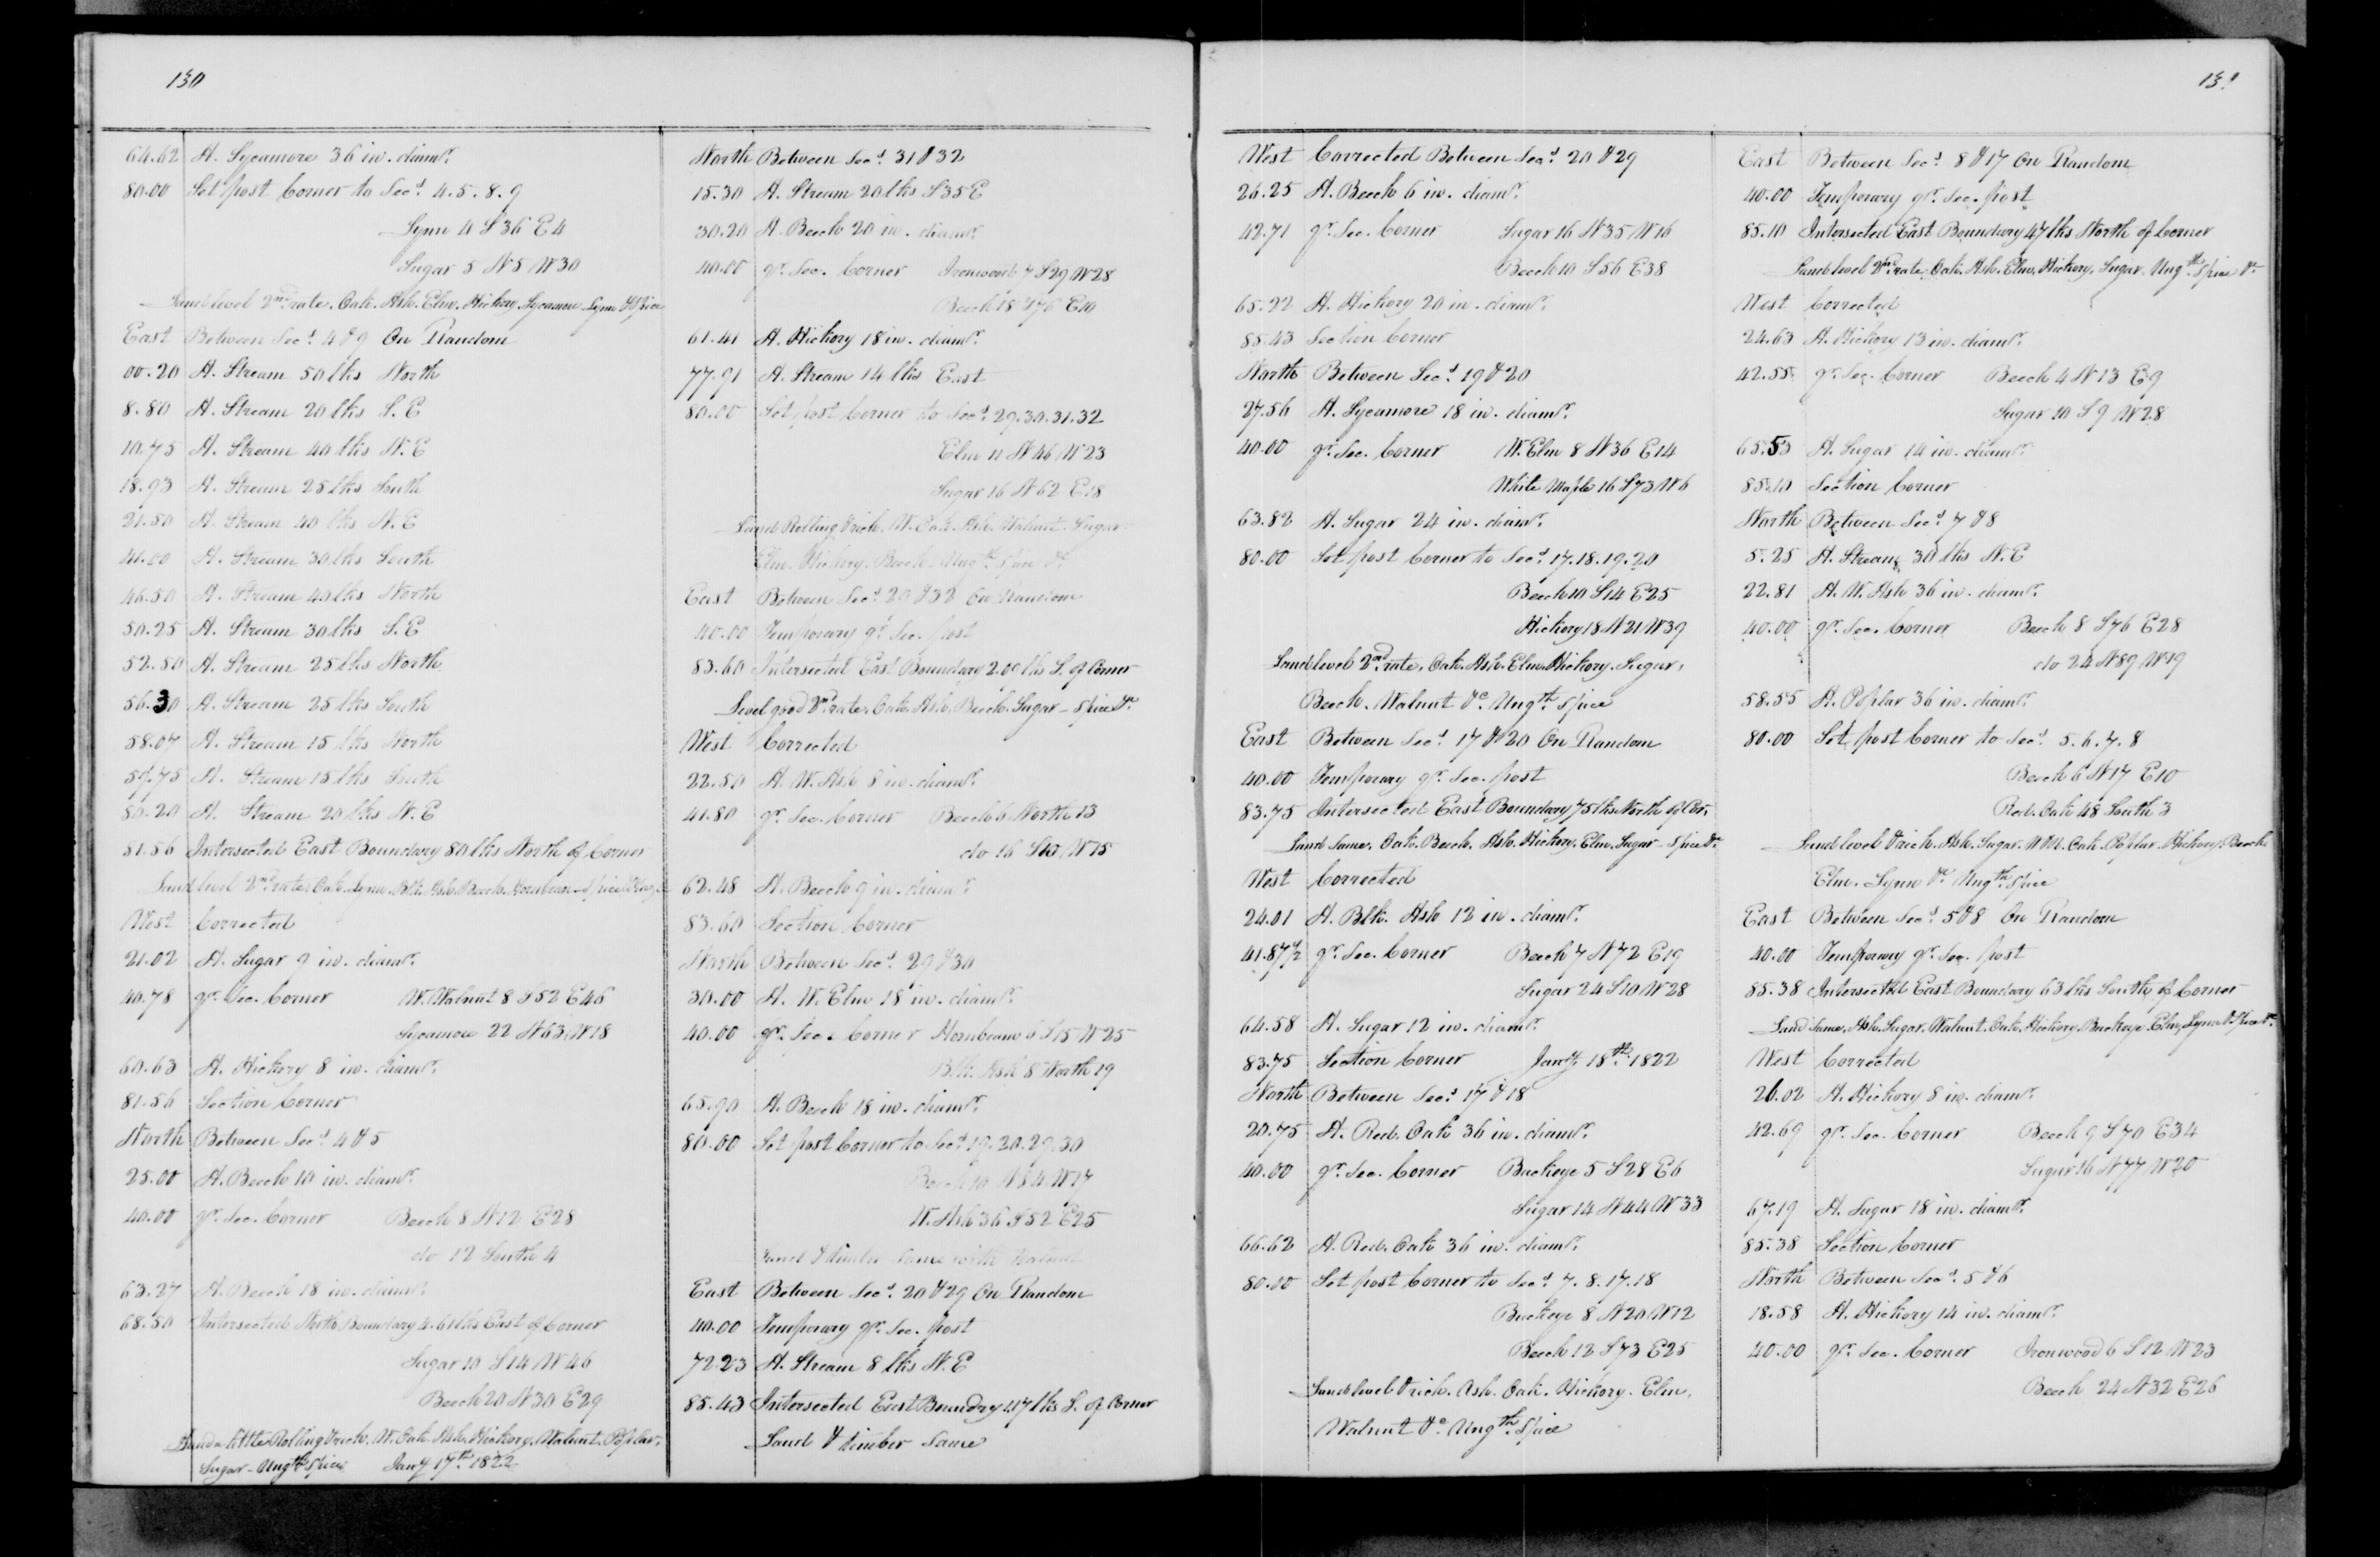 130
64.62 A. Sycamore 36 in. diamr.
80.00 Set post Corner to Secs. 4. 5. 8. 9
Lynn 4 S 36 E 4
Sugar 5 N 5 W 30
Land level 2nd rate. Oak. Ash. Elm. Hickory. Sycamore Lynn & Spice
East Between Secs. 4 & 9 On Random
00.20 A. Stream 50 lks North
8.80 A. Stream 20 lks S. E
10.75 A. Stream 40 lks N. E
18.93 A. Stream 25 lks South
21.50 A. Stream 40 lks N. E
41.00 A. Stream 30 lks South
46.50 A. Stream 40 lks North
50.25 A. Stream 30 lks S. E
52.50 A. Stream 25 lks North
56.30 A. Stream 25 lks South
58.07 A. Stream 15 lks North
59.75 A. Stream 15 lks South
80.20 A. Stream 20 lks N. E
81.56 Intersected East Boundary 80 lks North of Corner
Land level 2nd rate. Oak. Lynn. Blk. Ash. Beech. Hornbeam - Spice
West Corrected
21.02 A. Sugar 9 in. diamr.
40.78 qr. Sec. Corner W. Walnut 8 S 52 E 46
Sycamore 22 N 63 W 18
60.63 A. Hickory 8 in. diamr.
81.56 Section Corner
North Between Secs. 4 & 5
25.00 A. Beech 10 in. diamr.
40.00 qr. Sec. Corner Beech 8 N 12 E 28
do 12 South 4
63.27 A. Beech 18 in. diamr.
68.50 Intersected North Boundary 4.61 lks East of Corner
Sugar 10 S 14 W 46
Beech 20 N 30 E 29
Land a little Rolling & rich. W. Oak. Ash. Hickory. Walnut. Poplar.
Sugar - Ungth. Spice Jany 17th 1822
North Between Secs. 31 & 32
15.30 A. Stream 20 lks S 35 E
30.20 A. Beech 20 in. diamr.
40.00 qr. Sec. Corner Ironwood 7 S 29 W 28
Beech 18 N 76 E 10
61.41 A. Hickory 18 in. diamr.
77.91 A. Stream 14 lks East
80.00 Set post Corner to Secs. 29. 30. 31. 32
Elm 11 N 46 W 23
Sugar 16 N 62 E 18
Land Rolling & rich. W. Oak. Ash. Walnut. Sugar
Elm. Hickory. Beech - Ungth. Spice &c
East Between Secs. 29 & 32 On Random
40.00 Temporary qr. Sec. post
83.60 Intersected East Boundary 2.00 lks S. of Corner
Level good 2nd rate. Oak. Ash. Beech. Sugar - Spice &c
West Corrected
22.50 A. W. Ash 8 in. diamr.
41.80 qr. Sec. Corner Beech 6 North 13
do 16 S 10 W 15
62.48 A. Beech 9 in. diamr.
83.60 Section Corner
North Between Secs. 29 & 30
30.00 A. W. Elm 18 in. diamr.
40.00 qr. Sec. Corner Hornbeam 6 S 15 W 25
Blk. Ash 8 North 19
65.90 A. Beech 18 in. diamr.
80.00 Set post Corner to Secs. 19. 20. 29. 30
Beech 10 N 84 W 17
W. Ash 36 S 52 E 25
Land & timber Same with Walnut
East Between Secs. 20 & 29 On Random
40.00 Temporary qr. Sec. post
72.23 A. Stream 8 lks N. E
85.43 Intersected East Boundry 117 lks S. of Corner
Land & timber Same
131
West Corrected Between Secs. 20 & 29
26.25 A. Beech 6 in. diamr.
42.71 qr. Sec. Corner Sugar 16 N 35 W 16
Beech 10 S 56 E 38
65.22 A. Hickory 20 in. diamr.
85.43 Section Corner
North Between Secs. 19 & 20
27.56 A. Sycamore 18 in. diamr.
40.00 qr. Sec. Corner W. Elm 8 N 36 E 14
White Maple 16 S 73 W 6
63.82 A. Sugar 24 in. diamr.
80.00 Set post Corner to Secs. 17. 18. 19. 20
Beech 10 S 14 E 25
Hickory 18 N 21 W 39
Land level 2nd rate. Oak. Ash. Elm. Hickory. Sugar,
Beech. Walnut &c. Ungth. Spice
East Between Secs. 17 & 20 On Random
40.00 Temporary qr. Sec. post
83.75 Intersected East Boundary 75 lks North of Cor.
Land Same, Oak. Beech. Ash. Hickory. Elm. Sugar - Spice &c.
West Corrected
24.01 A. Blk. Ash 12 in. diamr.
41.87 1/2 qr. Sec. Corner Beech 7 N 72 E 19
Sugar 24 S 10 W 28
64.58 A. Sugar 12 in. diamr.
83.75 Section Corner Jany. 18th 1822
North Between Secs. 17 & 18
20.75 A. Red. Oak 36 in. diamr.
40.00 qr. Sec. Corner Buckeye 5 S 28 E 6
Sugar 14 N 44 W 33
66.62 A. Red. Oak 36 in. diamr.
80.00 Set post Corner to Secs. 7. 8. 17. 18
Buckeye 8 N 20 W 12
Beech 12 S 73 E 25
Land level & rich. Ash. Oak. Hickory. Elm.
Walnut &c. Ungth. Spice
East Between Secs. 8 & 17 On Random
40.00 Temporary qr. Sec. post
85.10 Intersected East Boundary 47 lks North of Corner
Land level 2nd rate. Oak. Ash. Elm. Hickory. Sugar. Ungth. Spice &c
West Corrected
24.63 A. Hickory 13 in. diamr.
42.55 qr. Sec. Corner Beech 4 N 13 E 9
Sugar 10 S 9 W 28
65.53 A. Sugar 14 in. diamr.
85.10 Section Corner
North Between Secs. 7 & 8
5.25 A. Stream 30 lks N. E
22.81 A. W. Ash 36 in. diamr.
40.00 qr. Sec. Corner Beech 8 S 76 E 28
do 24 N 89 W 19
58.55 A. Poplar 36 in. diamr.
80.00 Set post Corner to Secs. 5. 6. 7. 8
Beech 6 N 17 E 10
Red. Oak 48 South 3
Land level & rich. Ash. Sugar. W. Oak. Poplar. Hickory. Beech
Elm. Lynn &c Ungth. Spice
East Between Secs. 5 & 8 On Random
40.00 Temporary qr. Sec. post
85.38 Intersected East Boundary 63 lks South of Corner
Land Same, Ash. Sugar. Walnut. Oak. Hickory. Buckeye. Elm. Lynn & Spice &c.
West Corrected
26.02 A. Hickory 8 in. diamr.
42.69 qr. Sec. Corner Beech 9 S 70 E 34
Sugar 16 N 77 W 20
67.19 A. Sugar 18 in. diamr.
85.38 Section Corner
North Between Secs. 5 & 6
18.58 A. Hickory 14 in. diamr.
40.00 qr. Sec. Corner Ironwood 6 S 12 W 23
Beech 24 N 32 E 26